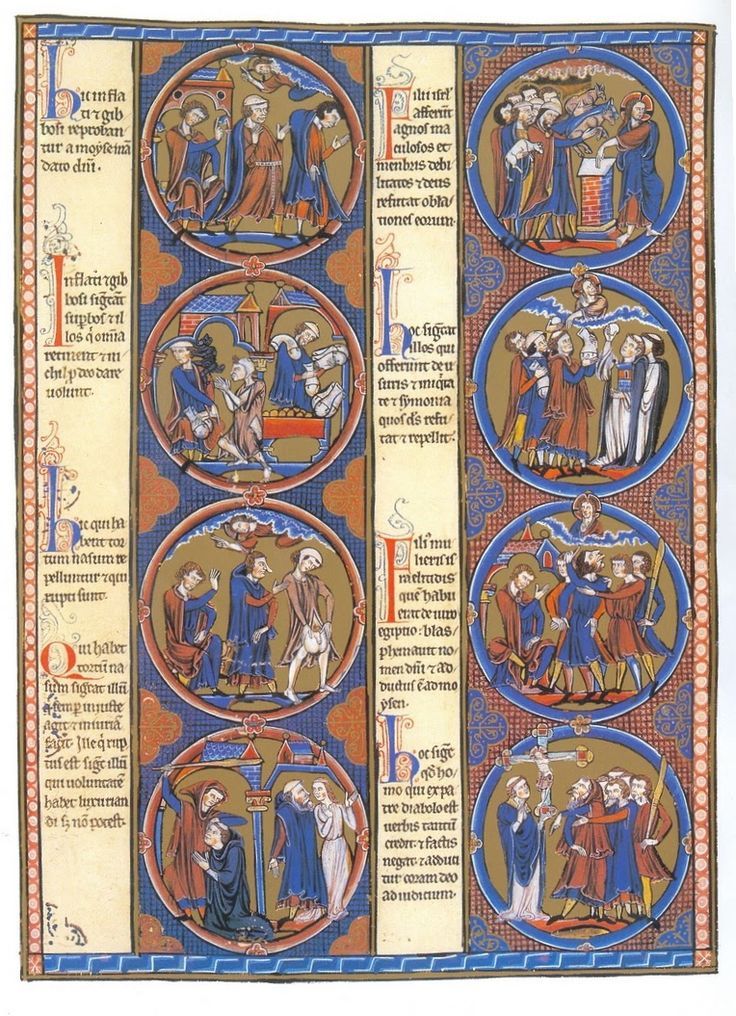 Hic infla
ti ⁊ gib
bosi reproban
tur a moẏse inmā
dato dn̄i.
Inflati ⁊ gib
bosi signāt
suꝑbos ⁊ il
los q̇ om̄ia
retinent ⁊ ni
chil ꝓ deo dare
uolunt.
Hic qui ha
bent tor
tum nasum re
pelluntur ⁊ qui
rupti sunt.
Qui habet
tortūm na
sum signat illū
semꝑ iniuste
agit ⁊ iniuriā
facit. Ille q̇ rup
tus est signꝫ illū
qui uoluntatē
habet luxurian
di sꝫ nō potest.
Filii isrl̓
afferūt
agnos ma
culosos et
menbris debi
litatos ⁊ deus
refutat obla
tiones eorum.
Hoc signat
illos qui
offerunt de u
suris ⁊ iniq̇ta
te ⁊ sẏmonia
quos dš refu
tat ⁊ repellit.
Filiꝰ mu
lieris is
raelitidis
quē habu
erat de uiro
egiptio: blas
phemauit no
men dn̄i ⁊ ad
ductus ē ad mo
ẏsen.
Hoc signꝫ
qd̓ ho
mo qui ex pa
tre diabolo est
uerbis tantū
credit ⁊ factis
negat ⁊ adduci
tur coram deo
ad iudicium.